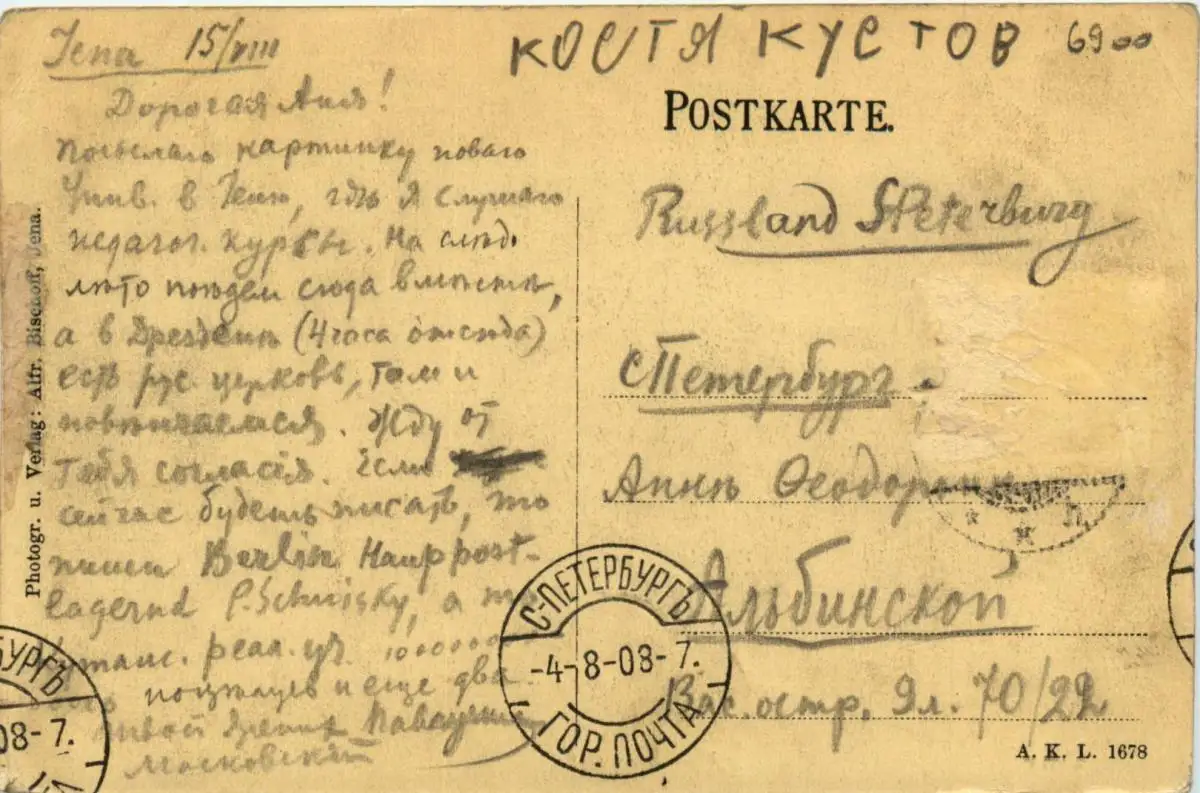 Jena 15/VIII
Дорогая Аня!
посылаю картинку новаго
Унив. в Іене, гдѣ я слушаю
педагог. курсы. На слѣд.
лѣто поѣдем сюда вмѣстѣ,
а в Дрезденѣ (4 часа отсюда)
есть рус. церковь, там и
повѣнчаемся. Жду от
тебя согласія. Если
сейчас будешь писать, то
пиши Berlin Hauppost-
lagernd P. Schmisky, а то
реал. уч. 1000000
поцѣлуев и еще два
твой
Московскій
Photogr. u. Verlag: Alfr. Bischoff, Jena.
КОСТЯ КУСТОВ 6900
POSTKARTE.
Russland S Peterburg
с Петербург.
Аннѣ Ѳеодоровнѣ
Альбинской
Вас. остр. 9 л. 70/22
С-ПЕТЕРБУРГЪ
-4-8-08-7.
ГОР. ПОЧТА
08-7.
A. K. L. 1678